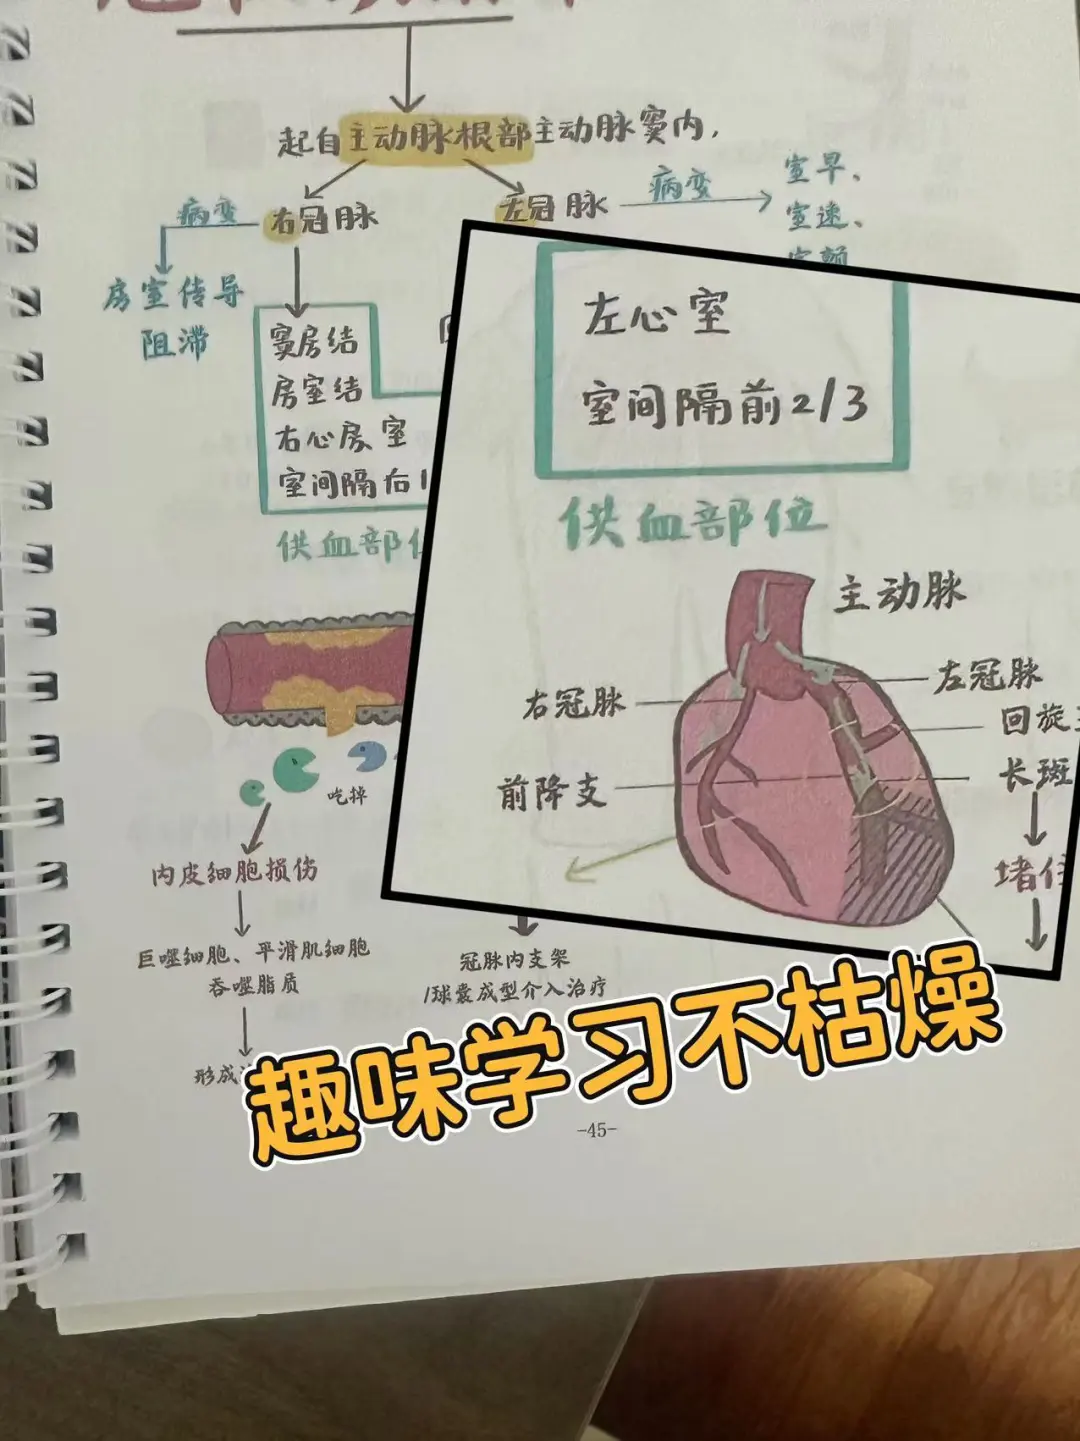 起自主动脉根部主动脉窦内,
病变
右冠脉
左冠脉
病变
室早、
室速、
房室传导
阻滞
窦房结
房室结
右心房、室
室间隔右1
供血部位
左心室
室间隔前2/3
供血部位
主动脉
右冠脉
左冠脉
回旋支
前降支
长斑
堵住
吃掉
内皮细胞损伤
巨噬细胞、平滑肌细胞
吞噬脂质
形成
冠脉内支架
/球囊成型介入治疗
趣味学习不枯燥
-45-